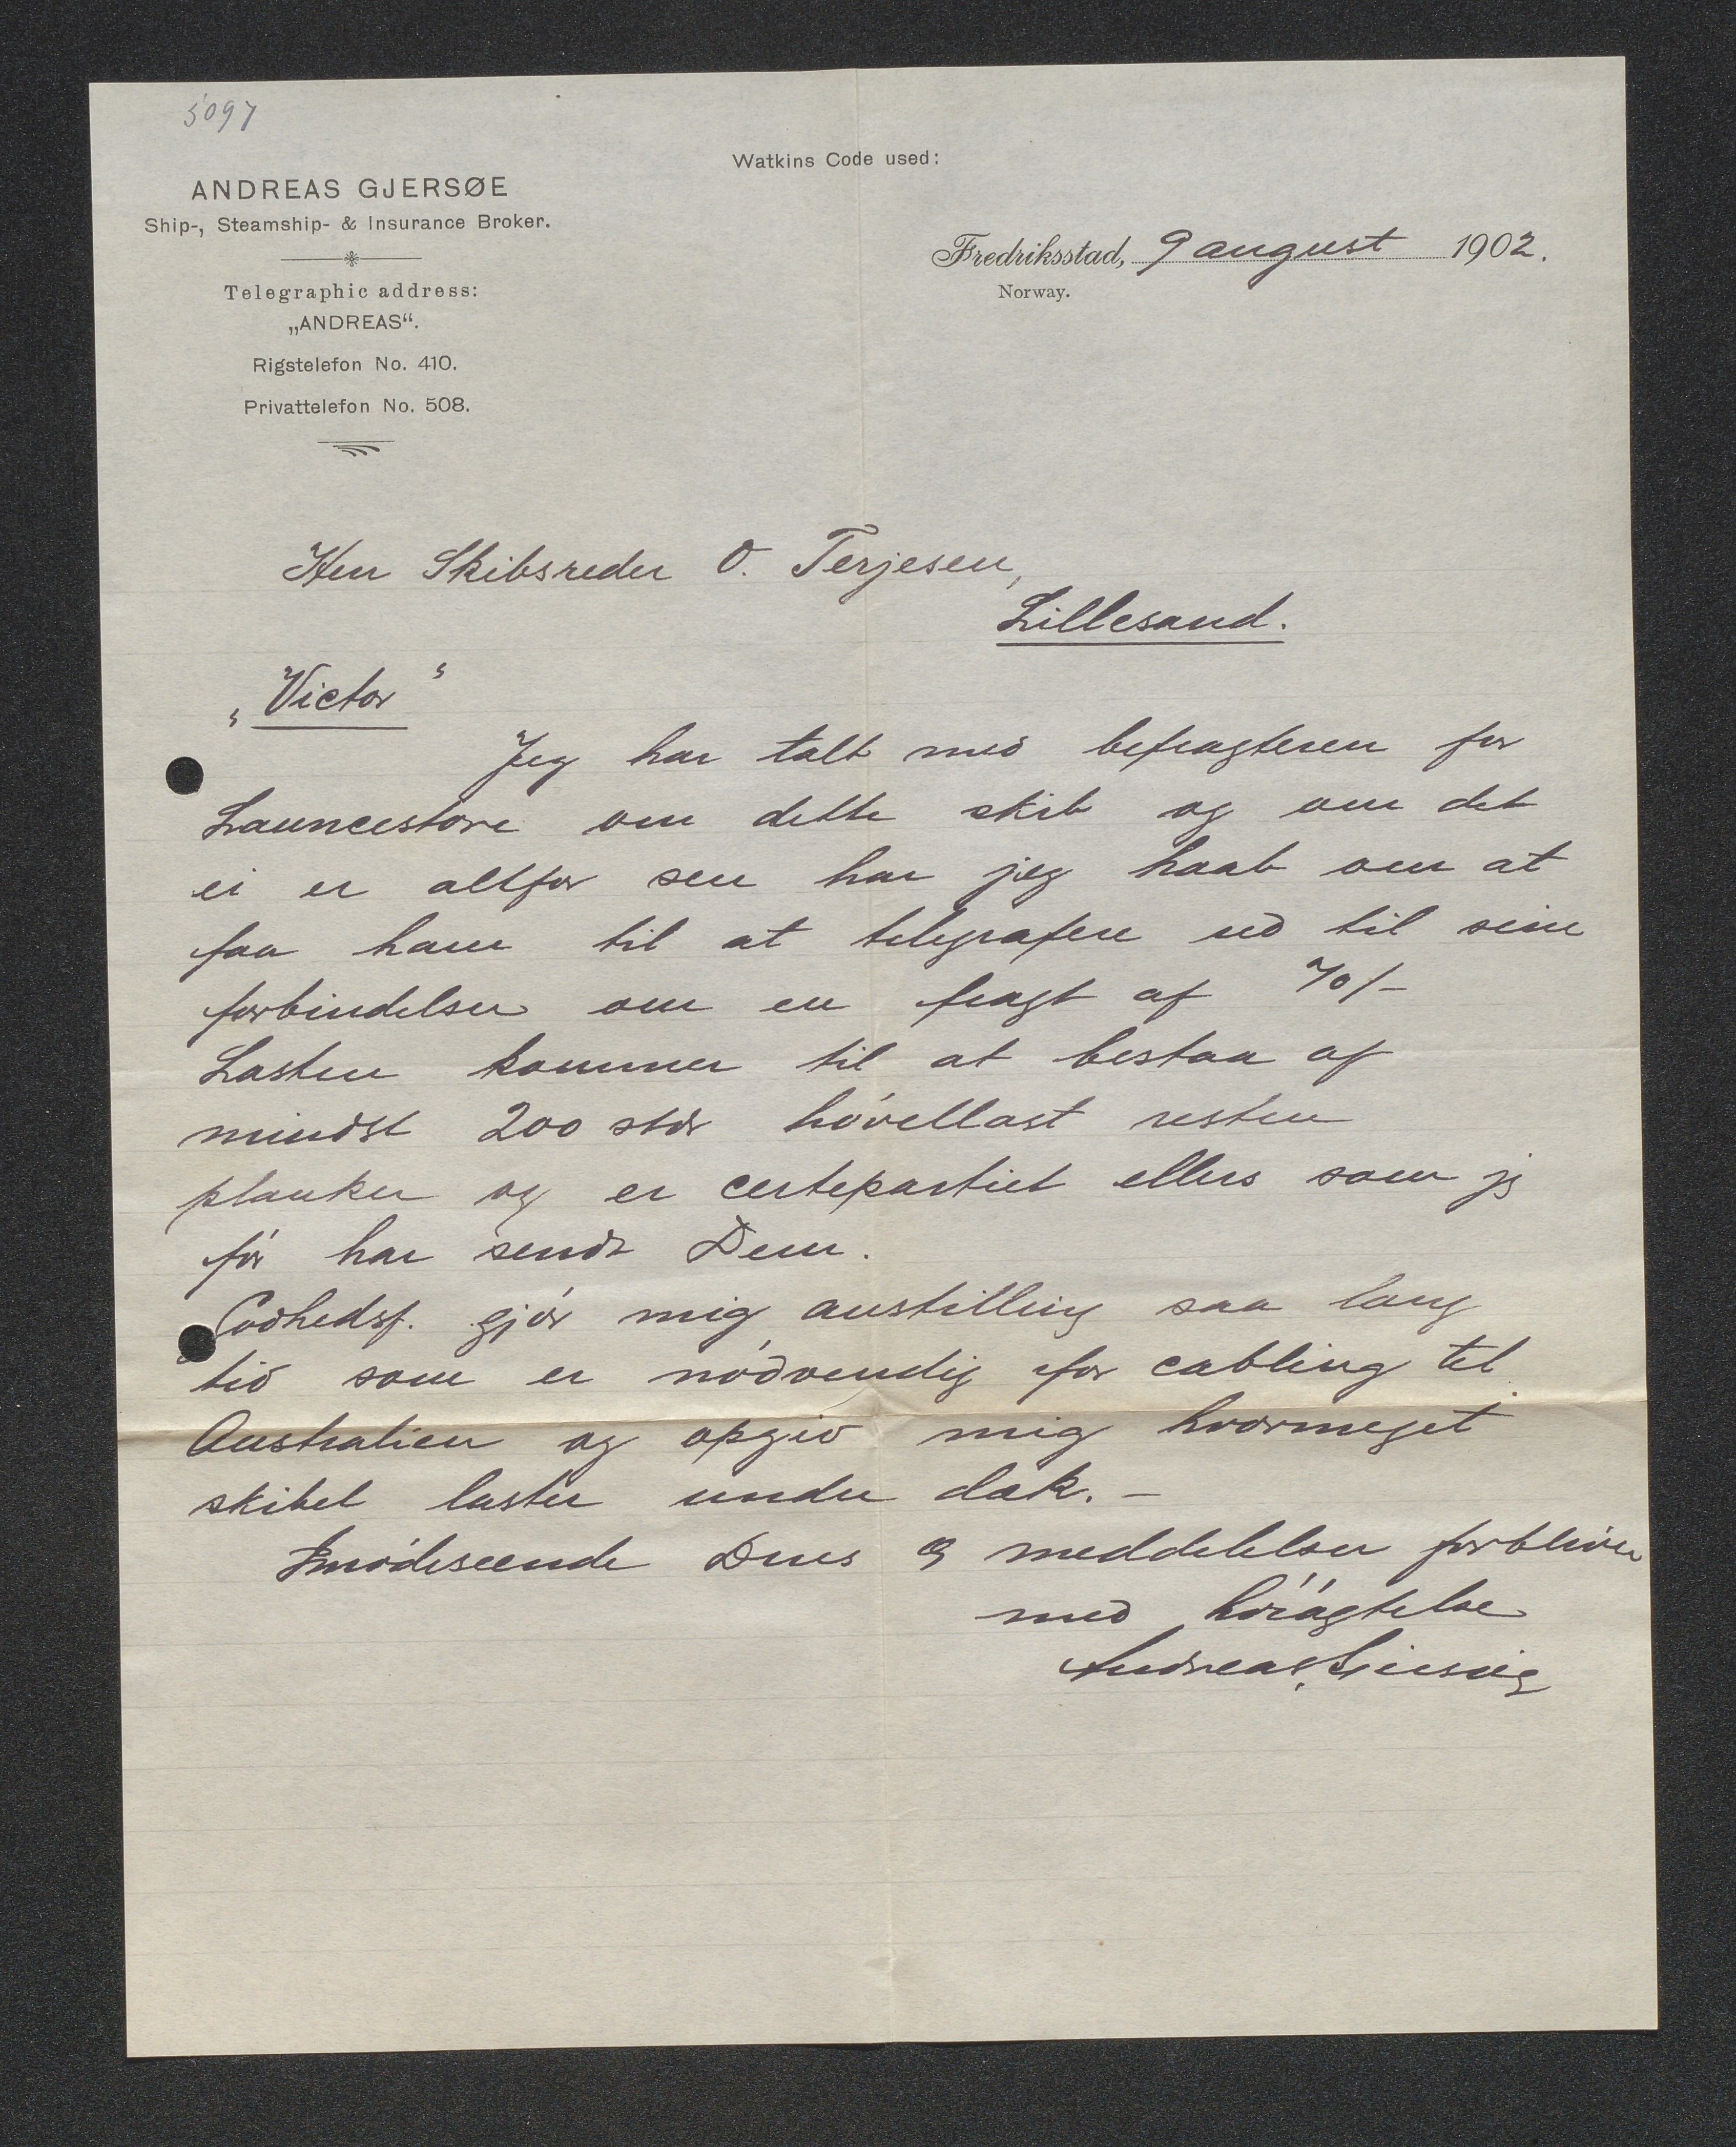 5097
Watkins Code used:
ANDREAS GJERSØE
Ship-, Steamship- & Insurance Broker.
Telegraphic address:
„ANDREAS“.
Rigstelefon No. 410.
Privattelefon No. 508.
Fredriksstad, 9 august 1902.
Norway.
Herr Skibsreder O. Terjesen,
Lillesand.
„Victor“
Jeg har talt med befragteren for
Launcestone om dette skib og om det
ei er altfor sen har jeg haab om at
faa ham til at telegrafere ud til sine
forbindelser om en fragt af 70/-
Lasten kommer til at bestaa af
mindst 200 stdr høvellast resten
planker og er certepartiet ellers som jg
før har sendt Dem.
Godhedsf. gjør mig anstilling saa lang
tid som er nødvendig for cabling til
Australien og opgiv mig hvormeget
skibet laster under dæk. -
Imødeseende Deres meddelelser forbliver
med höiagtelse
Andreas Gjersøe